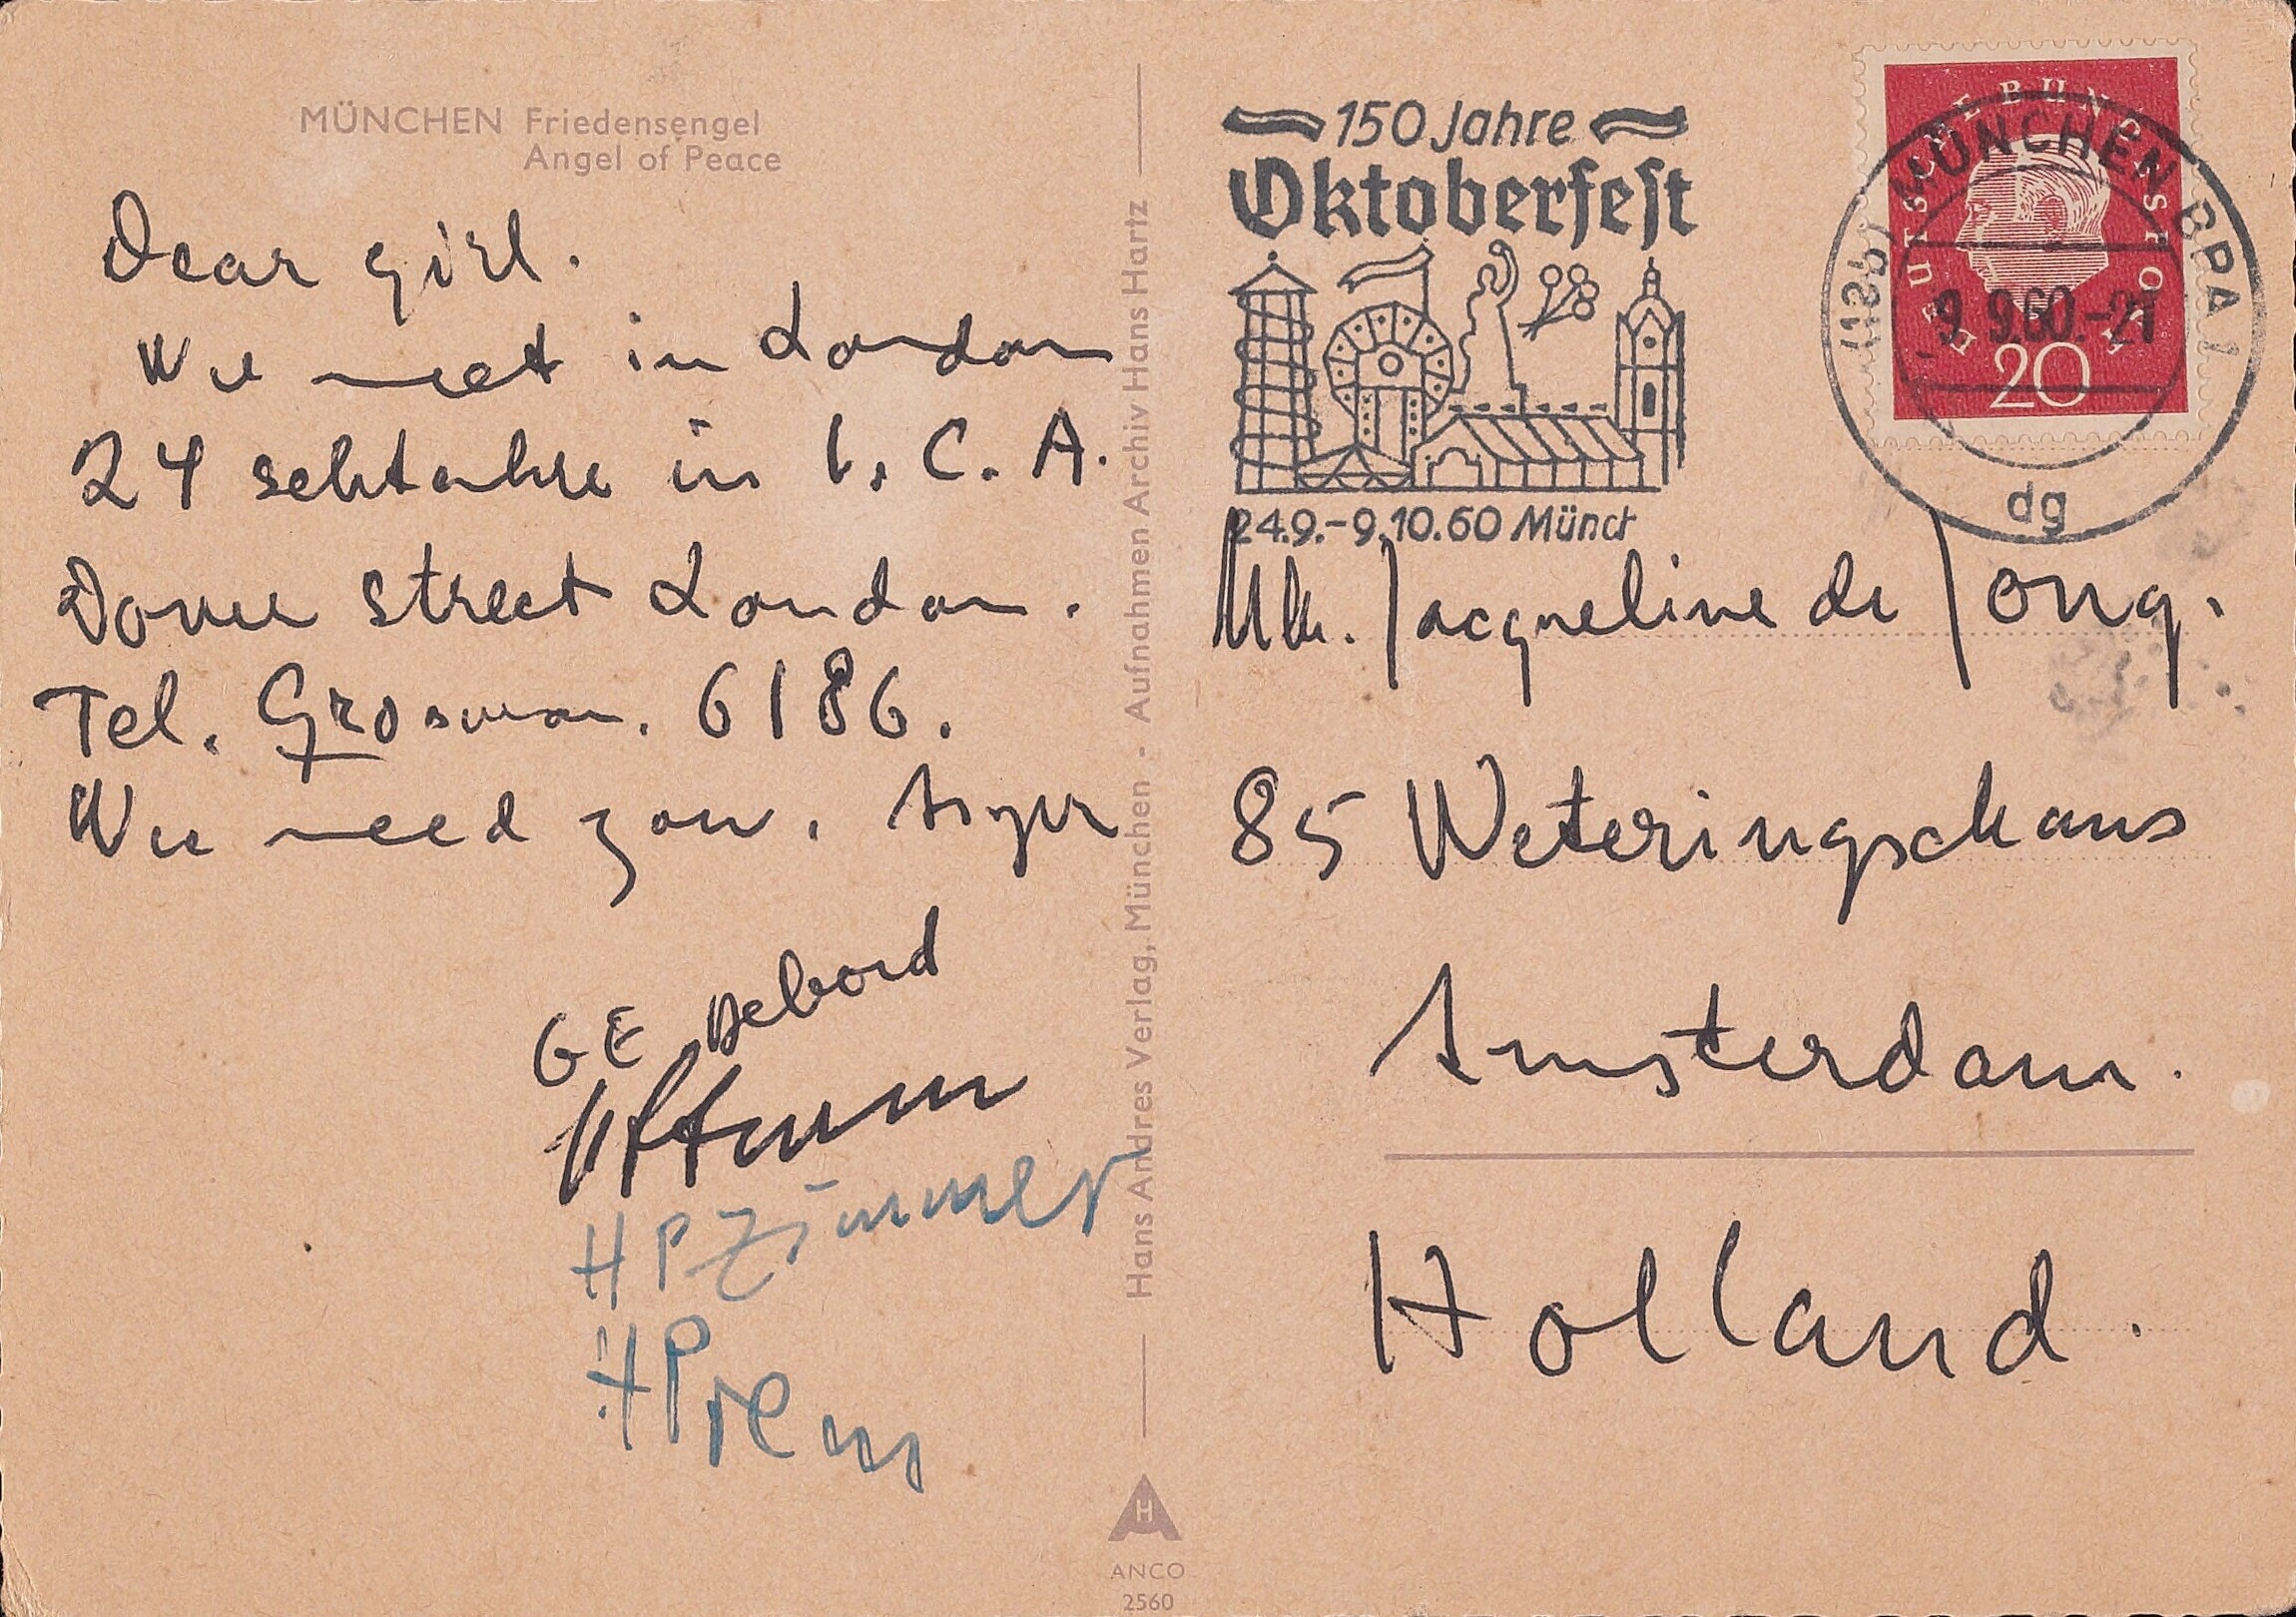 MÜNCHEN Friedensengel
Angel of Peace
Dear girl.
We meet in London
24 sebtembre in I. C. A.
Dover street London.
Tel. Grosvenor. 6186.
We need you. Asger
GE Debord
HP Zimmer
H Prem
Hans Andres Verlag, München - Aufnahmen Archiv Hans Hartz
H
ANCO
2560
150 Jahre
Oktoberfest
24.9.-9.10.60 Münch
DEUTSCHE BUNDESPOST
20
(13b) MÜNCHEN BPA 1
-9.9.60.-21
dg
Mlle. Jacqueline de Jong.
85 Weteringschans
Amsterdam.
Holland.